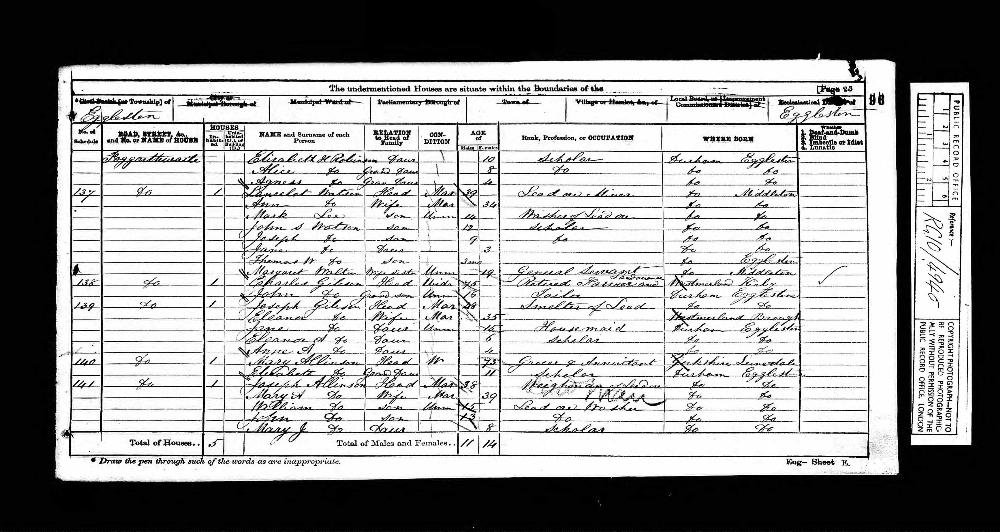 The undermentioned Houses are situate within the Boundaries of the
[Page 23
98
Civil Parish [or Township] of
Municipal Borough of
Municipal Ward of
Parliamentary Borough of
Town of
Village or Hamlet, &c., of
Local Board, or [Improvement Commissioners District] of
Ecclesiastical District of
Eggleston
Eggleston
No. of Schedule
ROAD, STREET, &c., and No. or NAME of HOUSE
HOUSES
NAME and Surname of each Person
RELATION to Head of Family
CON-DITION
AGE of
Males Females
Rank, Profession, or OCCUPATION
WHERE BORN
Whether
1. Deaf-and-Dumb
2. Blind
3. Imbecile or Idiot
4. Lunatic
Elizabeth H Robinson Daur 10 Scholar Durham Eggleston
Alice Do Grand Daur 8 Do Do Do
Agness Do Gran Daur 4 Do Do
137 Do 1 Watson Head Mar 39 Lead ore Miner Do Middleton
Ann Do Wife Mar 34 Do Do
Mark Lee son Unm 14 Washer of Lead ore Do Do
John S Watson son 12 Scholar Do Do
Joseph Do son 9 Do Do Do
Jane Do Daur 3 Do Do
Thomas W Do son 3 mo Do Eggleston
Margaret Walton Unm 19 General Servant Do Middleton
138 Do 1 Charles Gibson Head 75 Retired Westmorland Kirby
John Do Grand son Unm 16 Tailor Durham Eggleston
139 Do 1 Joseph Gibson Head Mar 48 Smelter of Lead Do Do
Eleanor Do Wife Mar 35 Westmorland Brough
Jane Do Daur Unm 16 Housemaid Durham Eggleston
Eleanor A Do Daur 6 Scholar Do Do
Anne A Do Daur 4 Do Do
140 Do 1 Mary Allinson Head W 73 Annuitant Yorkshire
Elizabeth Do Grand Daur 11 Scholar Durham Eggleston
141 Do 1 Joseph Allinson Head Mar 38 Do Do
Mary A Do Wife Mar 39 Do Do
William Do son Unm 15 Lead ore Washer Do Do
John Do son 13 Do Do Do
Mary J Do Daur 8 Scholar Do Do
Total of Houses.. 5 Total of Males and Females.. 11 14
* Draw the pen through such of the words as are inappropriate.
Eng— Sheet E.
PUBLIC RECORD OFFICE
1 2 3 4 5 6
Reference :—
RG10/4940
COPYRIGHT PHOTOGRAPH—NOT TO BE REPRODUCED PHOTOGRAPHICALLY WITHOUT PERMISSION OF THE PUBLIC RECORD OFFICE, LONDON